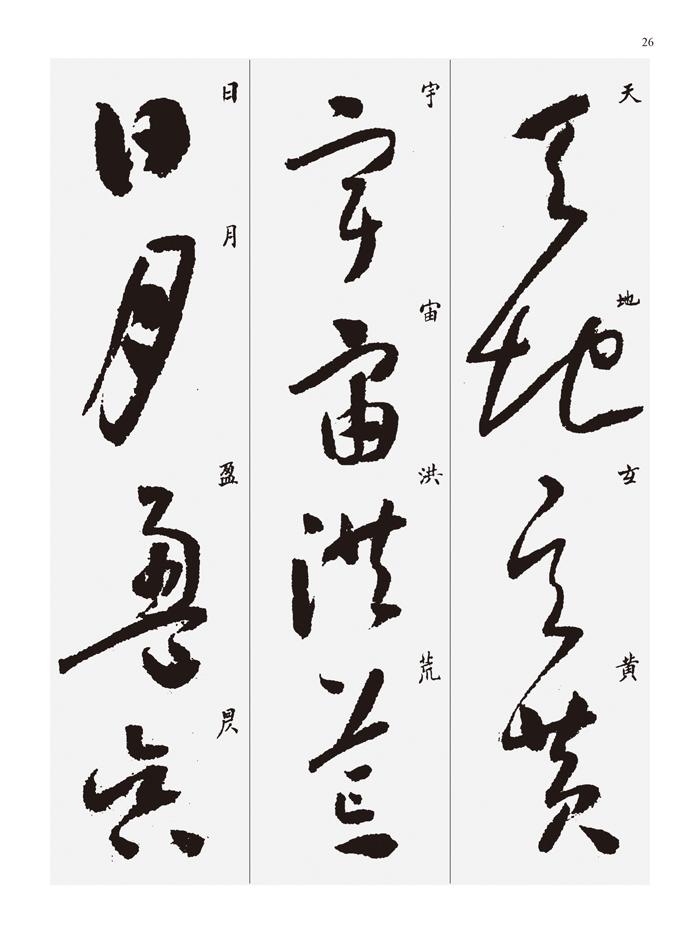 26
天地玄黄
天地玄黄
宇宙洪荒
宇宙洪荒
日月盈昃
日月盈昃